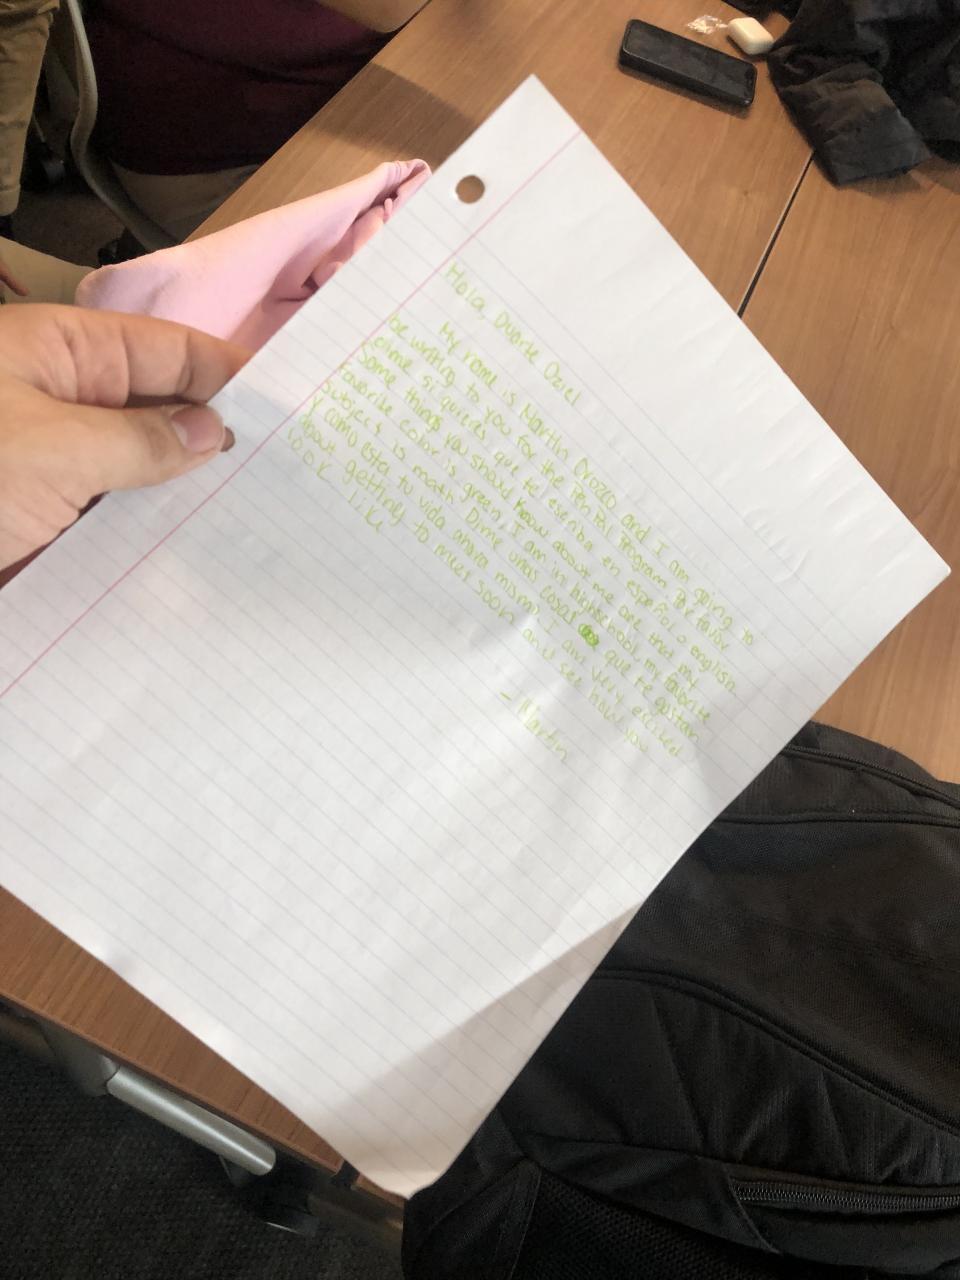 Hola, Duarte Oziel
My name is Martin Orozco and I am going to
be writing to you for the Pen Pal Program. Por favor
dime si quieres que te escriba en español o english.
Some things you should know about me are that my
favorite color is green, I am in highschool, my favorite
subject is math. Dime unas cosas que te gustan
y como esta tu vida ahora mismo. I am very excited
about getting to meet soon and see how you
look like
- Martin